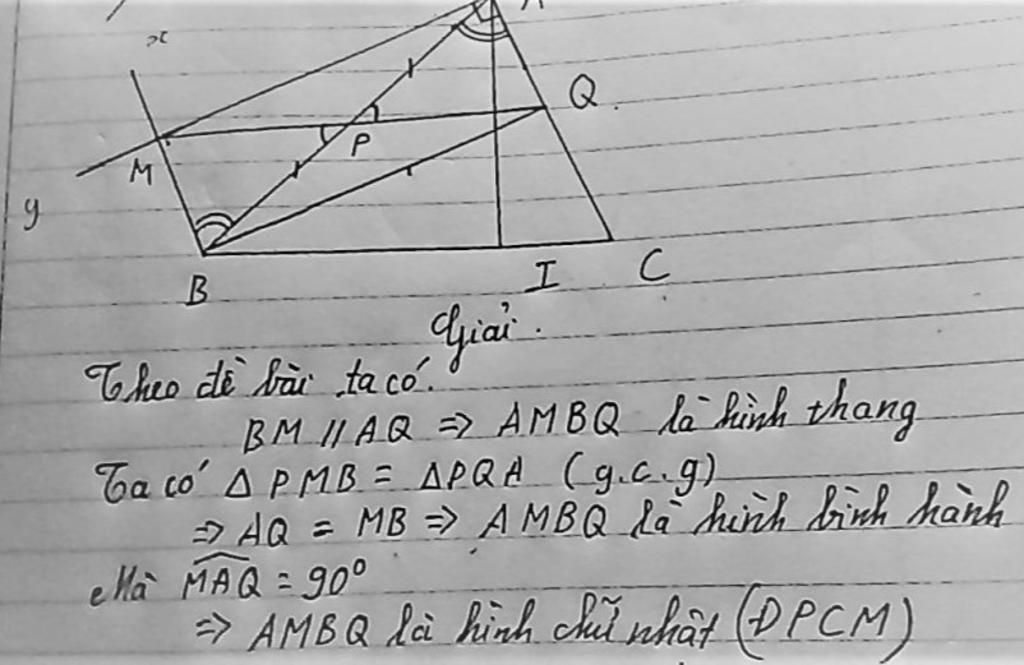 x
A
Q
M
P
y
B
I
C
Giải.
Theo đề bài ta có.
BM // AQ => AMBQ là hình thang
Ta có Δ PMB = ΔPQA (g.c.g)
=> AQ = MB => AMBQ là hình bình hành
Mà MAQ = 90°
=> AMBQ là hình chữ nhật (ĐPCM)